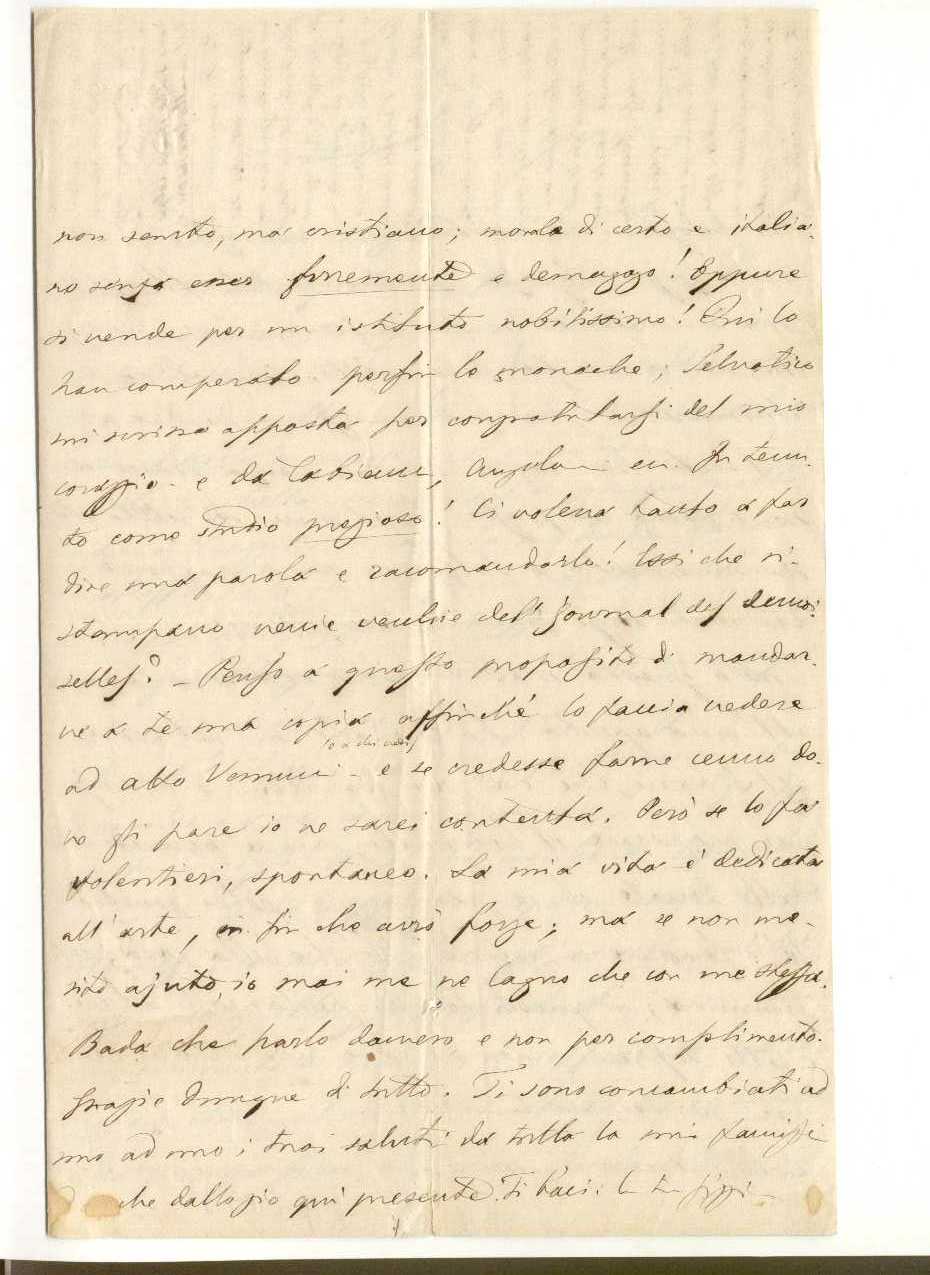 non santo, ma cristiano; morale di certo e italia-
no senza esser furremente e demagogo! Eppure
si vende per un istituto nobilissimo! Qui lo
han comperato perfin le monache; Selvatico
mi scrisse apposta per congratularsi del mio
coraggio - e da Cabianca, Angela en. fu tenu-
to come studio prezioso! Ci voleva tanto a far
dire una parola e racomandarlo! Essi che ri-
stampano nenie vecchie dell' Journal des demoi-
selles? - Penso a questo proposito di mandar-
ne a te una copia affinché lo faccia vedere
o a chi credi
ad - e se credesse farne cenno do-
ve gli pare io ne sarei contenta. Però se lo fa
volentieri, spontaneo. La mia vita è dedicata
all' arte, fin che avrò forze; ma se non me-
rito ajuto, io mai me ne lagno che con me stessa.
Bada che parlo davvero e non per complimento.
Grazie dunque di tutto. Ti sono concambiati ad
uno ad uno i tuoi saluti da tutta la mia famiglia
che dallo zio quì presente. Ti baci. la tua